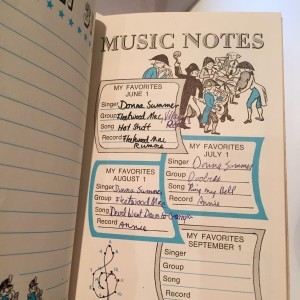 MUSIC NOTES
MY FAVORITES
JUNE 1
Singer Donna Summer
Group Fleetwood Mac, Village
Song Hot Stuff
Record Fleetwood Mac
Rumors
MY FAVORITES
JULY 1
Singer Donna Summer
Group Doobies
Song Ring my Bell
Record Annie
MY FAVORITES
AUGUST 1
Singer Donna Summer
Group Fleetwood Mac
Song Devil Went Down to Georgia
Record Annie
MY FAVORITES
SEPTEMBER 1
Singer
Group
Song
Record